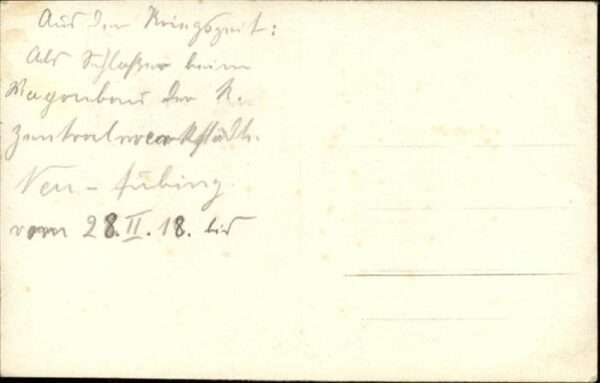 Aus der Kriegszeit:
Als Schlosser beim
Wagenbau der K.
Zentralwerkstädte.
Neu-Aubing
vom 28.II.18. bis